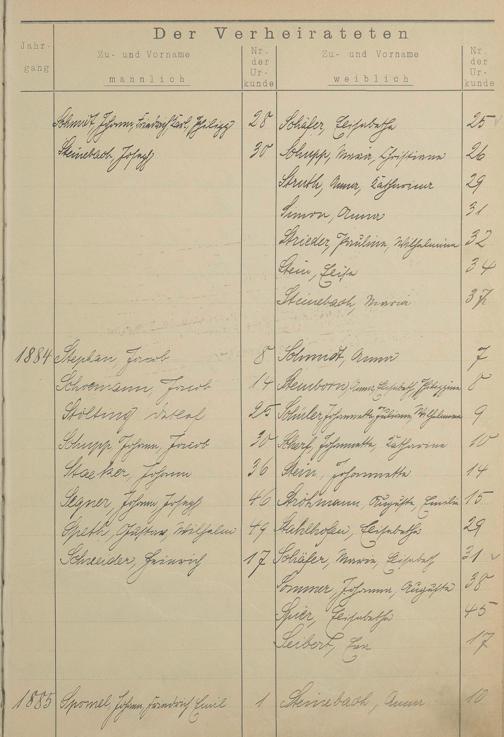 Der Verheirateten
Jahr-
gang
Zu- und Vorname
männlich
Nr.
der
Ur-
kunde
Zu- und Vorname
weiblich
Nr.
der
Ur-
kunde
Schmidt, Johann, Friedrich Karl, Philipp 28 Schäfer, Elisabetha 25
Steinebach, Josef 30 Schupp, Maria, Christiane 26
Struth, Anna, Katharina 29
Simon, Anna 31
Strieder, Pauline, Wilhelmine 32
Stein, Elise 34
Steinebach, Maria 37
1884 Stephan, Jacob 8 Schmidt, Anna 7
Schoemann, Jacob 14 Steinborn, Anna, Elisabeth, 8
Stölting 25 Johannette Wilhelmine 9
Schupp Johann, Jacob 30 Scharf, Johannette, Katharine 10
Staeker, Johann 36 Stein, Johannette 14
Segner, Johann, Josef 46 Ströhmann, Auguste, Emilie 15
Speth, Gustav, Wilhelm 49 Stahlhofen, Elisabetha 29
Schneider, Heinrich 17 Schäfer, Maria, Elisabeth 31
Sommer, Johanna, Auguste 38
Spier, Elisabetha 45
Seibert, Eva 17
1885 Spornel, Johann, Friedrich Emil 1 Steinebach, Anna 10